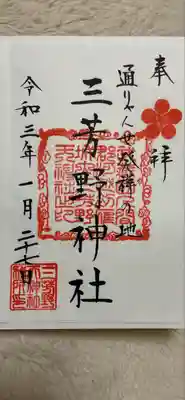 奉拝
通りゃんせ発祥の地
三芳野神社
令和三年一月二十七日